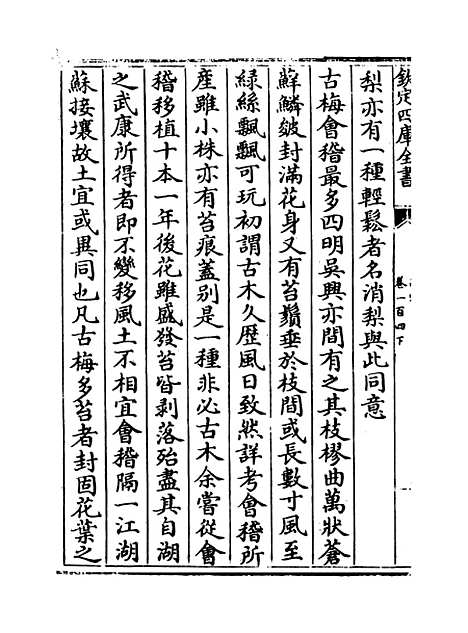 欽定四庫全書
卷一百四下
梨亦有一種輕鬆者名消梨與此同意
古梅會稽最多四明吳興亦間有之其枝樛曲萬狀蒼
蘚鱗皴封滿花身又有苔鬚垂於枝間或長數寸風至
綠絲飄飄可玩初謂古木久歷風日致然詳考會稽所
產雖小株亦有苔痕蓋别是一種非必古木余嘗從會
稽移植十本一年後花雖盛發苔皆剥落殆盡其自湖
之武康所得者即不變移風土不相宜會稽隔一江湖
蘇接壤故土宜或異同也凡古梅多苔者封固花葉之